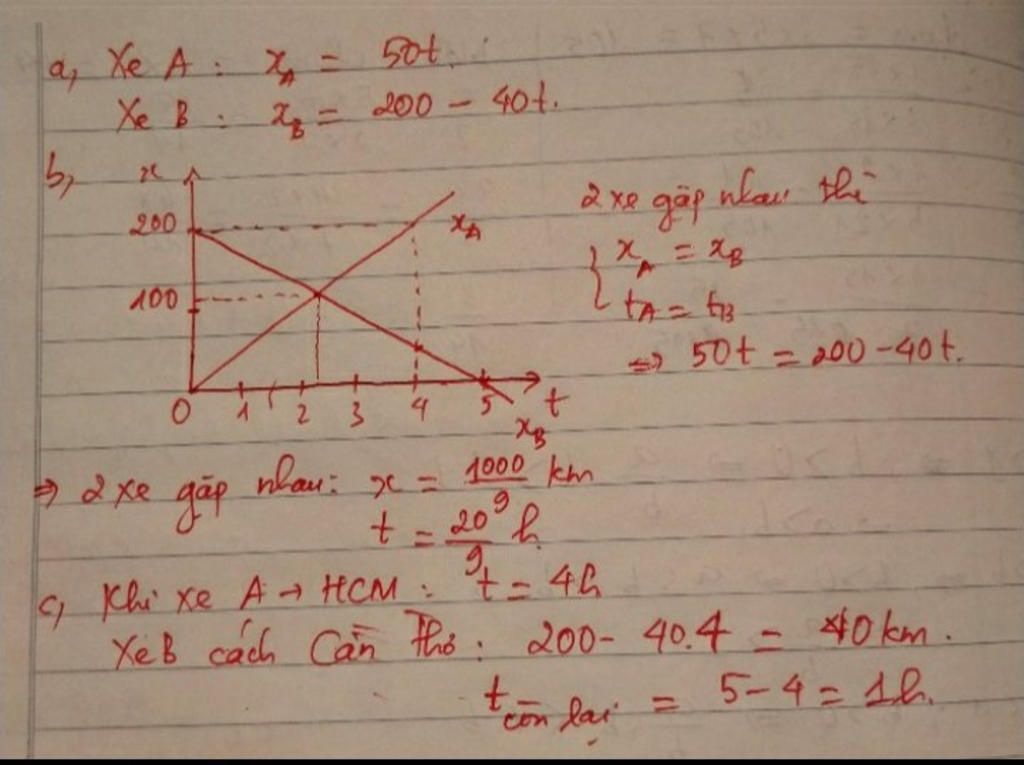 a, Xe A : x_A = 50t.
Xe B : x_B = 200 - 40t.
b,
x
200
100
0 1 2 3 4 5 t
x_A
x_B
2 xe gặp nhau thì
{ x_A = x_B
t_A = t_B
=> 50t = 200 - 40t.
=> 2 xe gặp nhau: x = 1000/9 km
t = 20/9 h
c, Khi xe A → HCM : t = 4h
Xe B cách Cần Thơ : 200 - 40.4 = 40 km.
t còn lại = 5 - 4 = 1h.